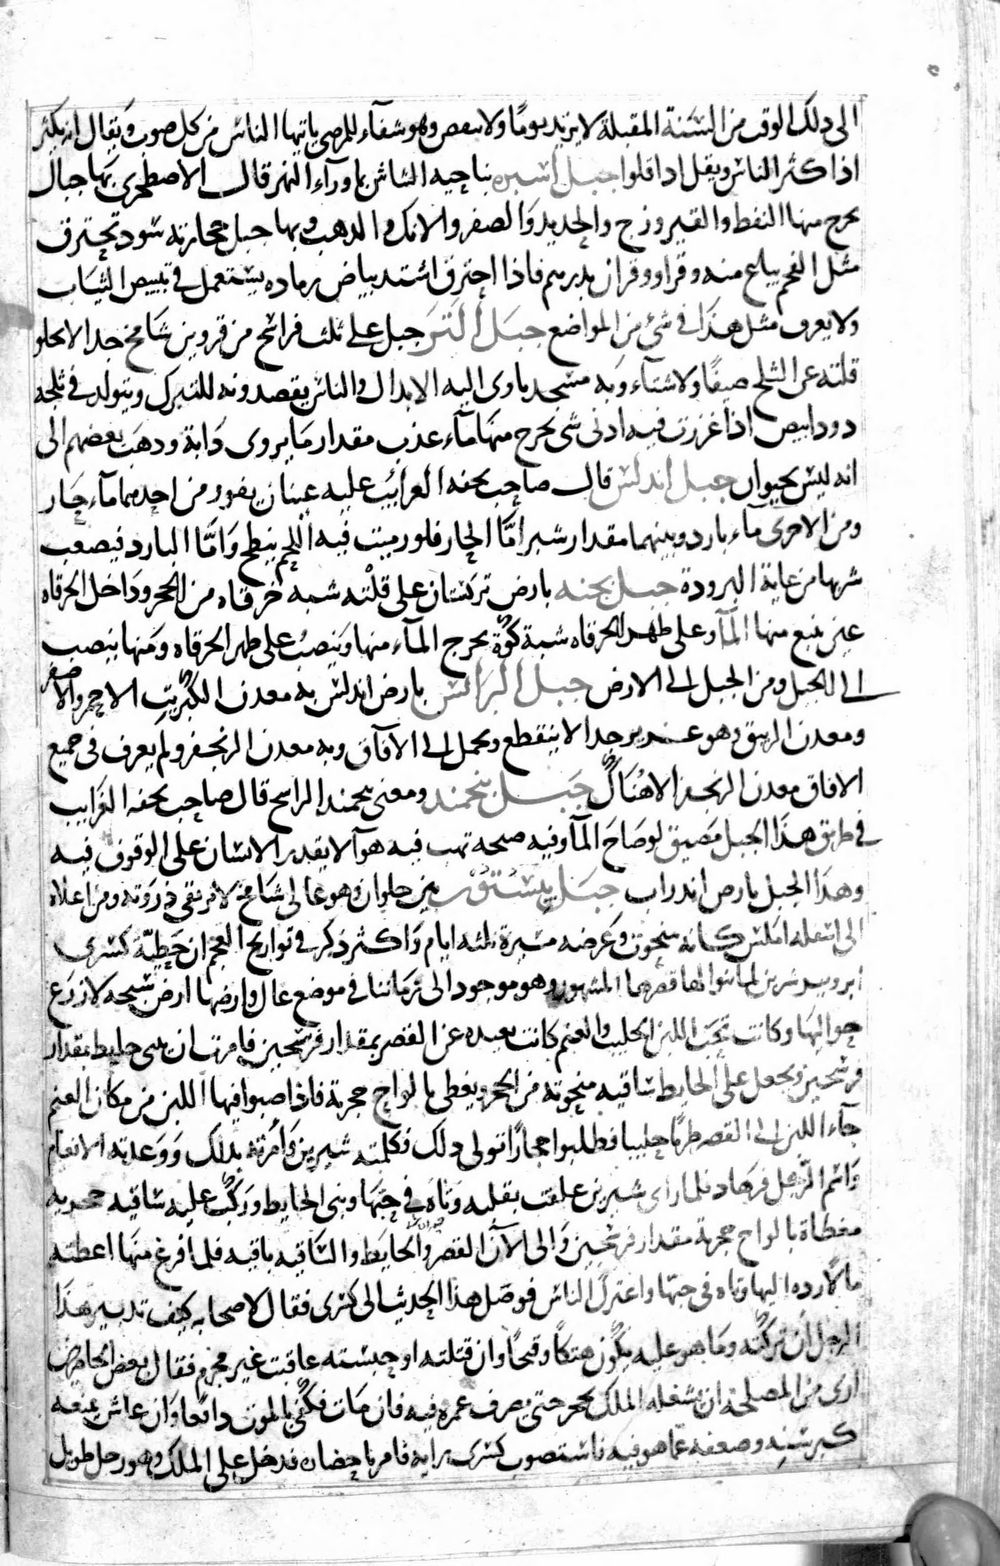 الى ذلك الوقت من السنة المقبلة لا يزيد يومًا ولا ينقص وهو شفاء للمرضى ياتيها الناس من كل صوب ويقال انه يكثر
اذا كثر الناس ويقل اذا قلوا جبل اسبره بناحيه الشاش بما وراء النهر قال الاصطخرى بها جبال
يخرج منها النفط والفيروزج والحديد والصفر والانك والذهب وبها جبل حجارته سود تحترق
مثل الفحم يباع منه وقر او وقران بدرهم فاذا احترق اشتد بياض رماده يستعمل فى تبييض الثياب
ولا يعرف مثل هذا فى شئ من المواضع جبل التر جبل على ثلث فراسخ من قزوين شامخ جدا لا يخلو
قلته عن الثلج صيفًا ولا شتاء وبه مسجد ياوى اليه الابدال والناس يقصدونه للتبرك ويتولد فى ثلجه
دود ابيض اذا غرزت فيه ادنى شئ يخرج منها ماء عذب مقدار ما يروى دابة وذهب بعضهم الى
انه ليس بحيوان جبل اندلس قال صاحب تحفه الغرائب عليه عينان يفور من احدهما ماء حار
ومن الاخرى ماء بارد وبينهما مقدار شبر اما الحار فلو رميت فيه اللحم ينطبخ واما البارد فيصعب
شربها من غاية البرودة جبل بجنه بارض تركستان على قلته شبه خرقاه من الحجر وداخل الخرقاه
عين ينبع منها الماء وعلى ظهر الخرقاه شبه كوة يخرج الماء منها وينصب على ظهر الخرقاه ومنها ينصب
الى الجبل ومن الجبل الى الارض جبل البرانس بارض اندلس به معدن الكبريت الاحمر والاصفر
ومعدن الزيبق وهو جدا لا ينقطع ويحمل الى الافاق وبه معدن الزنجفر ولم يعرف فى جميع
الافاق معدن الزنجفر الا هناك جبل بيخمند ومعنى بيخمند الراسخ قال صاحب تحفه الغرايب
فى طريق هذا الجبل مضيق لو صاح المار فيه صيحه تهب فيه هواء لا يقدر الانسان على الوقوف فيه
وهذا الجبل بارض اندراب جبل بيستون بين حلوان وهو عالى شامخ لا يرتقى ذروته ومن اعلاه
الى اسفله املس كانه منحوت وعرضه مسيرة ثلثه ايام واكثر ذكر فى تواريخ العجم ان حظية كسرى
ابرويز شرين لما بنوا لها قصرها المشهور وهو موجود الى زماننا فى موضع عال وارضها ارض شيحه لا زرع
حواليها وكانت تحب اللبن الحليب والغنم كانت بعيده عن القصر بمقدار فرسخين فامرت ان يبنى حايط بمقدار
فرسخين ويجعل على الحايط ساقيه منحوته من الحجر ويغطى بالواح حجرية فاذا صبوا فيها اللبن من مكان الغنم
جآء اللبن الى القصر طريًا حليبا فطلبوا حجارًا تولى ذلك فكلمته شيرين وامرته بذلك ووعدته الانعام
واسم الرجل فرهاد فلما راى شيرين علقت بقلبه وتاه فى حبها وبنى الحايط وركب عليه ساقيه حجريه
مغطاة بالواح حجرية مقدار فرسخين والى الآن القصر والحايط والساقيه باقيه فلما فرغ منها اعطته
مالًا رده اليها وتاه فى حبها واعتزل الناس فوصل هذا الحديث الى كسرى فقال لاصحابه كيف تدبير هذا
الرجل ان تركته وما هو عليه يكون هتكًا وقبحًا وان قتلته او حبسته عاقبت غير مجرم فقال بعض الحاضرين
ارى من المصلحة ان يشغله الملك بحجر حتى يصرف عمره فيه فان مات فكفى بالموت دافعا وان عاش يمنعه
كبر سنه وضعفه عما هو فيه فاستصوب كسرى رايه فامر باحضاره فدخل على الملك وهو رجل طويل